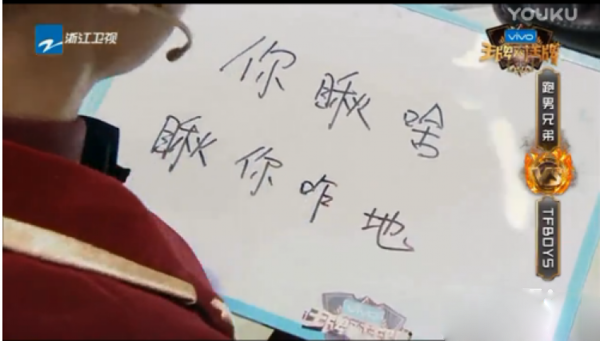 YOUKU
浙江卫视
vivo
王牌对王牌
你瞅啥
瞅你咋地
跑男兄弟
VS
TFBOYS